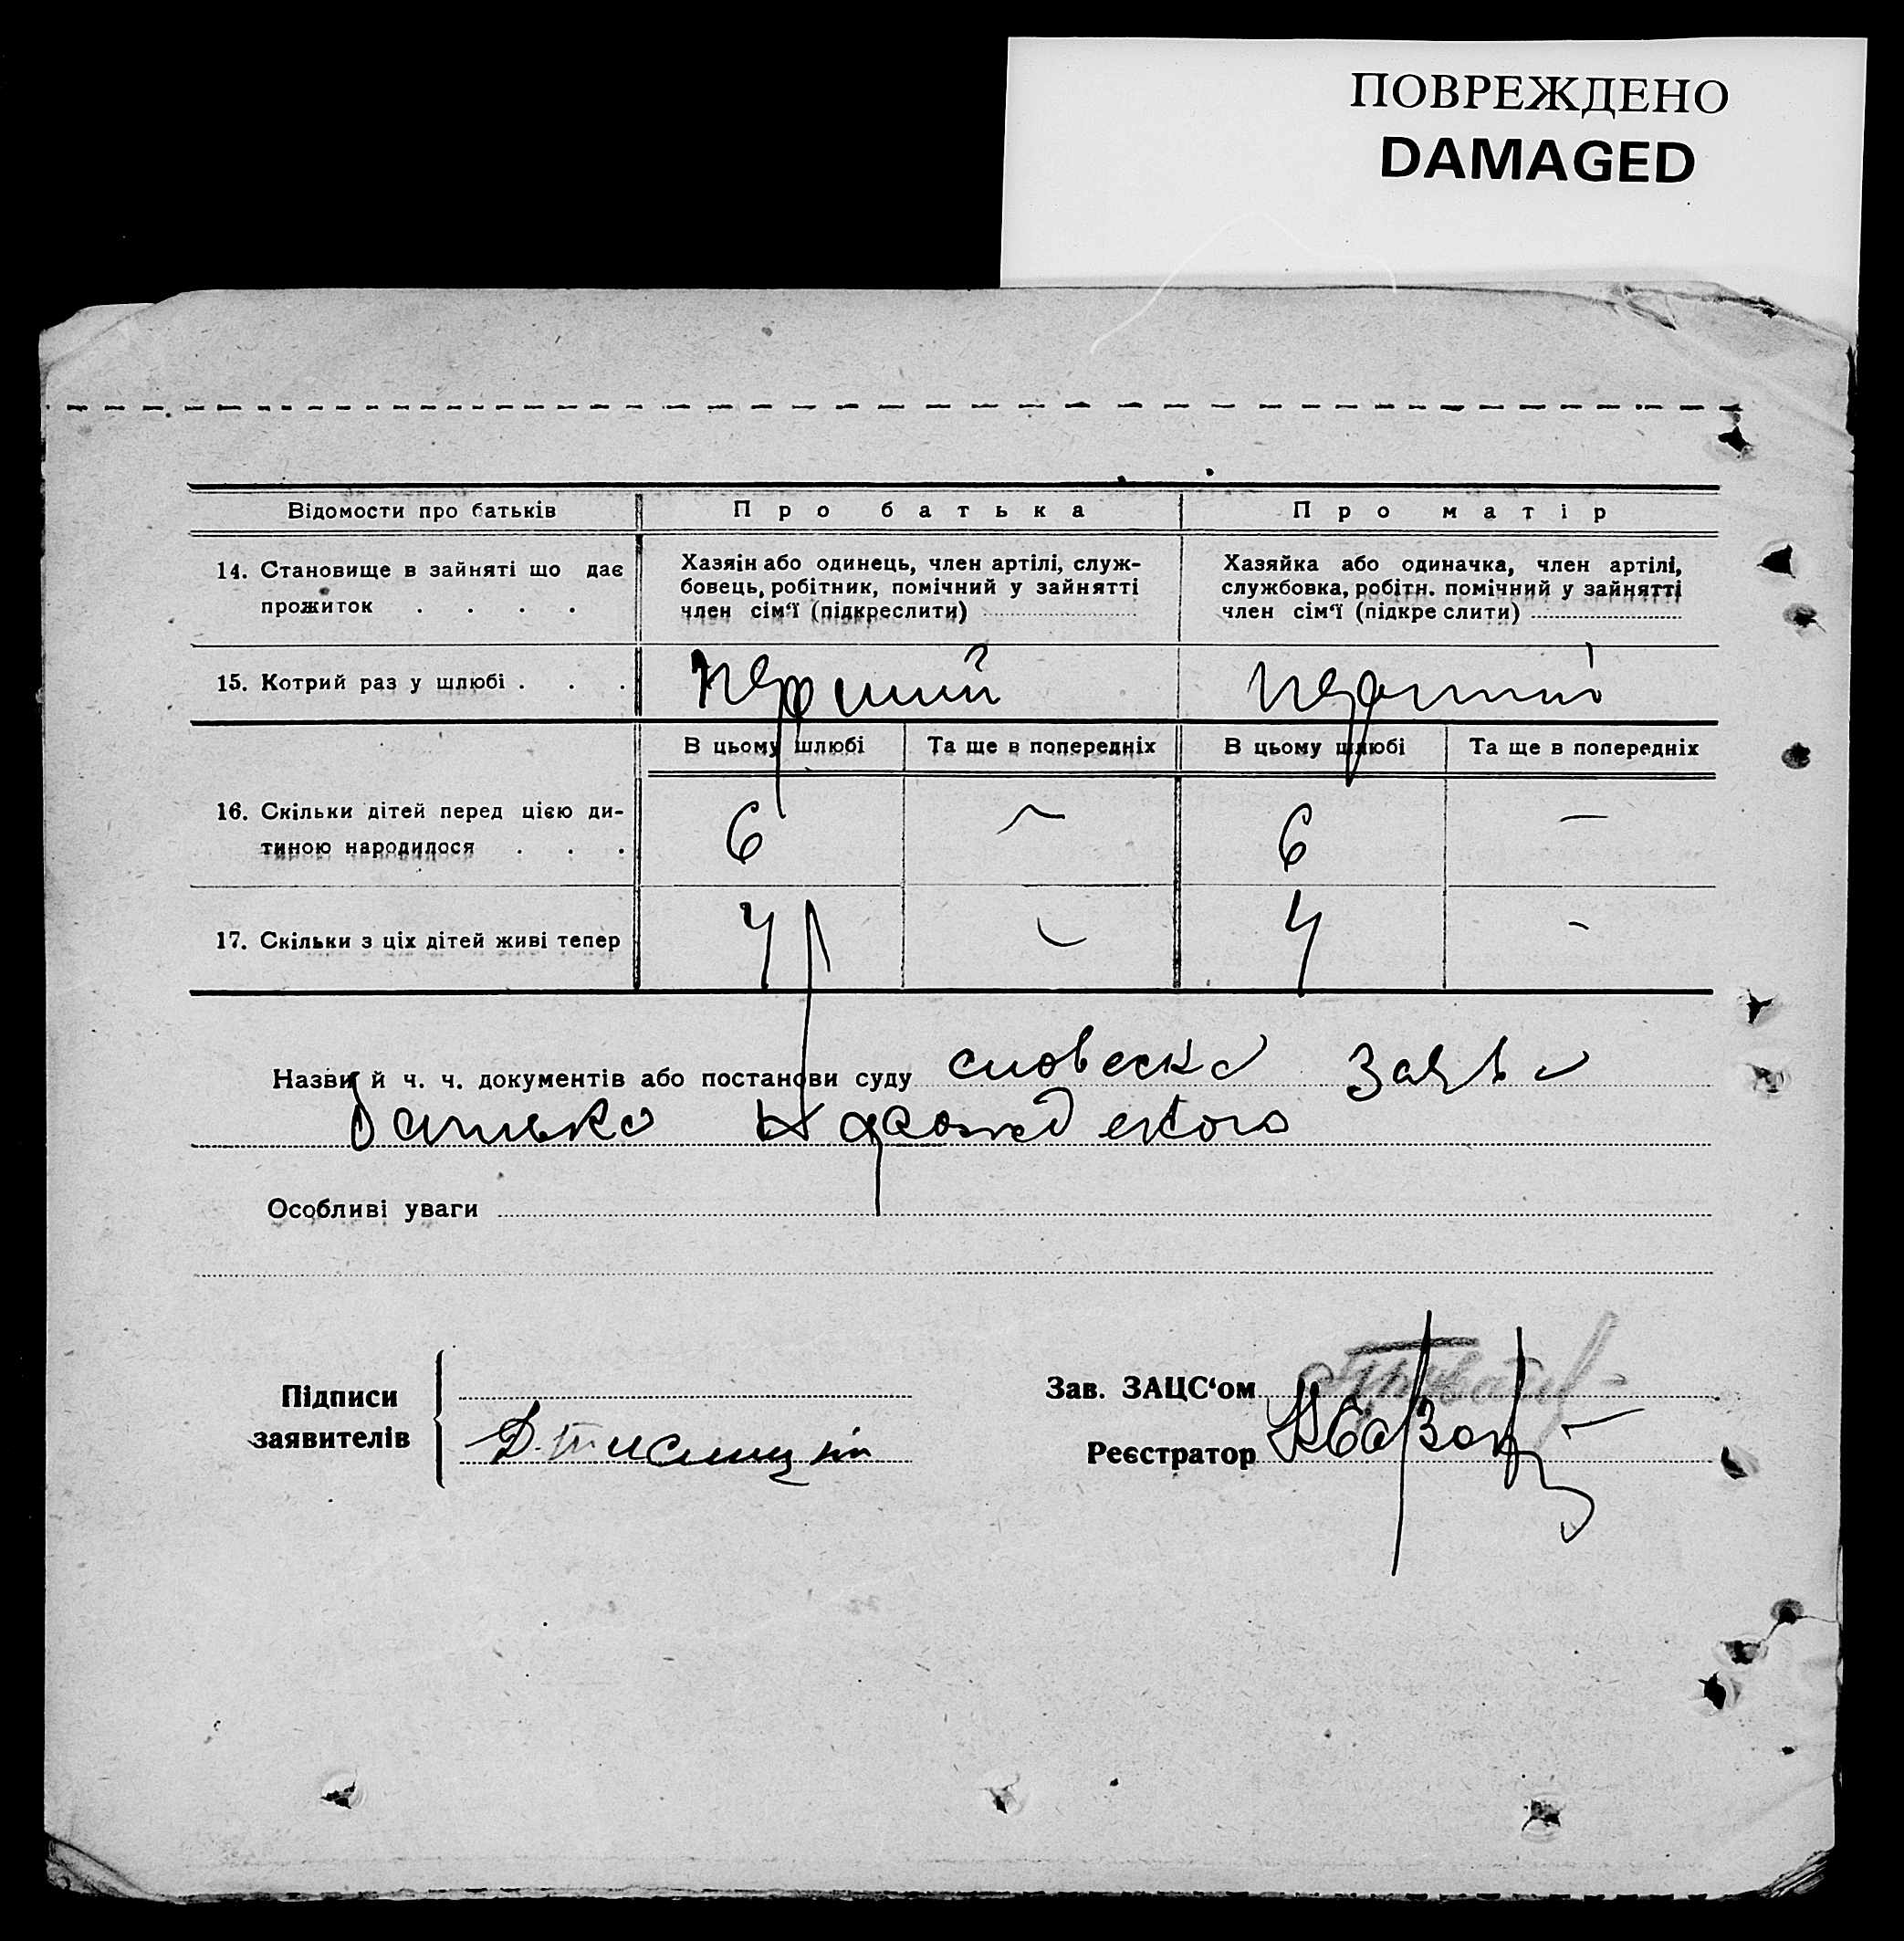 ПОВРЕЖДЕНО
DAMAGED
Відомости про батьків
Про батька
Про матір
14. Становище в зайняті що дає
прожиток . . . .
Хазяїн або одинець, член артілі, служ-
бовець, робітник, помічний у зайнятті
член сім‘ї (підкреслити)
Хазяйка або одиначка, член артілі,
службовка, робітн. помічний у зайнятті
член сім‘ї (підкре слити)
15. Котрий раз у шлюбі . . .
перший
перший
В цьому шлюбі
Та ще в попередніх
В цьому шлюбі
Та ще в попередніх
16. Скільки дітей перед цією ди-
тиною народилося . . .
6
—
6
—
17. Скільки з ціх дітей живі тепер
4
—
4
-
Назви й ч. ч. документів або постанови суду словеска заява
батька
Особливі уваги
Підписи
заявителів
Зав. ЗАЦС‘ом
Реєстратор